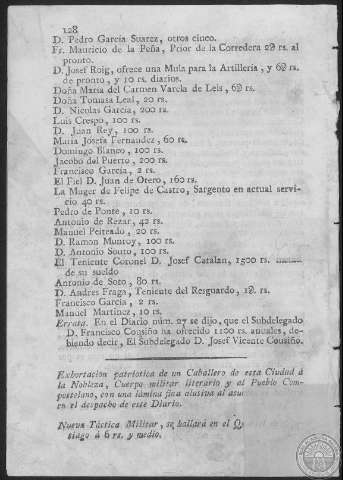 128
D. Pedro Garcia Suarez, otros cinco.
Fr. Mauricio de la Peña, Prior de la Corredera 2Ꝋ rs. al
pronto.
D. Josef Roig, ofrece una Mula para la Artillería, y 6Ꝋ rs.
de pronto, y 10 rs. diarios.
Doña María del Carmen Varela de Leis, 6Ꝋ rs.
Doña Tomasa Leal, 20 rs.
D. Nicolas García, 200 rs.
Luis Crespo, 100 rs.
D. Juan Rey, 100 rs.
María Josefa Fernandez, 60 rs.
Domingo Blanco, 100 rs.
Jacobo del Puerto, 200 rs.
Francisco García, 2 rs.
El Fiel D. Juan de Otero, 160 rs.
La Muger de Felipe de Castro, Sargento en actual servi-
cio 40 rs.
Pedro de Ponte, 10 rs.
Antonio de Rezar, 42 rs.
Manuel Peiteado, 20 rs.
D. Ramon Munroy, 100 rs.
D. Antonio Souto, 100 rs.
El Teniente Coronel D. Josef Catalan, 1500 rs.
de su sueldo
Antonio de Soto, 80 rs.
D. Andres Fraga, Teniente del Resguardo, 1Ꝋ rs.
Francisco García, 2 rs.
Manuel Martinez, 10 rs.
Errata. En el Diario núm. 27 se dijo, que el Subdelegado
D. Francisco Consiño ha ofrecido 1100 rs. anuales, de-
biendo decir, El Subdelegado D. Josef Vicente Consiño.
Exhortacion patriotica de un Caballero de esta Ciudad á
la Nobleza, Cuerpo militar literario y al Pueblo Com-
postelano, con una lámina fina alusiva al asu
en el despacho de este Diario.
Nueva Táctica Militar, se hallará en el
tiago á 6 rs. y medio.